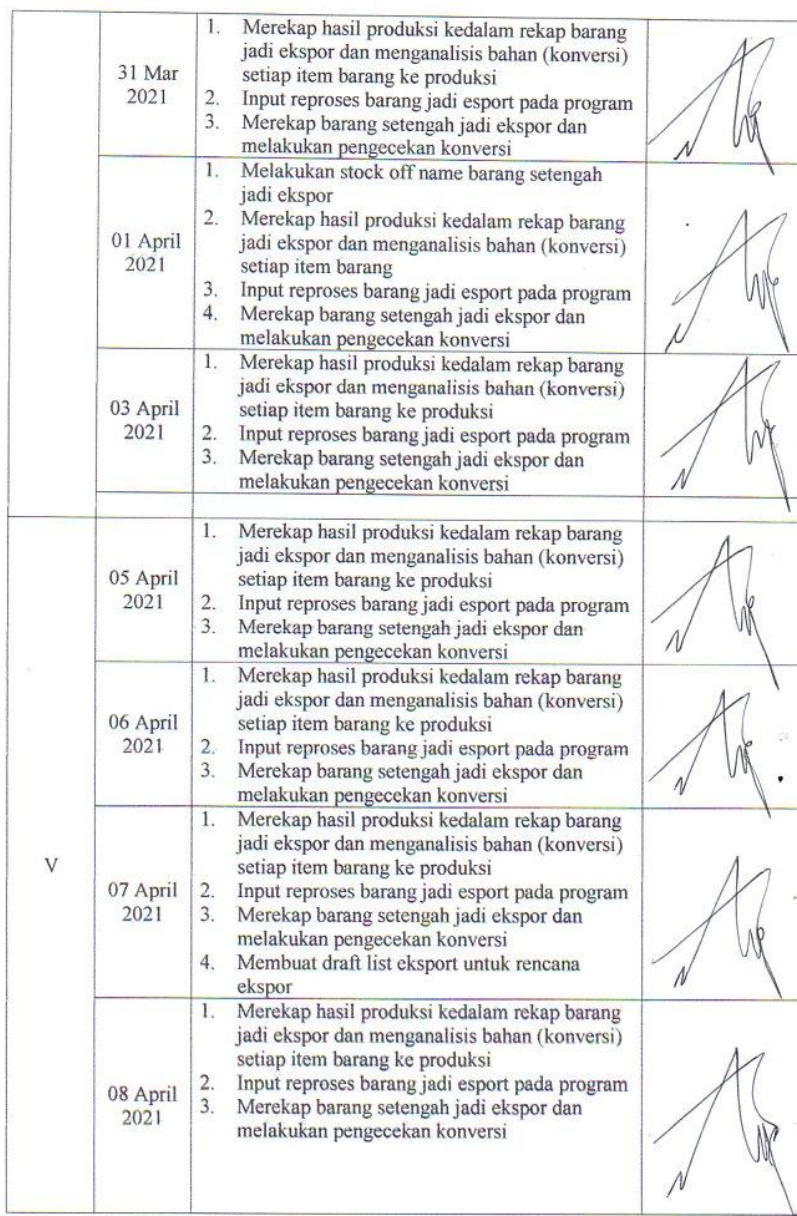 31 Mar
2021
1. Merekap hasil produksi kedalam rekap barang
jadi ekspor dan menganalisis bahan (konversi)
setiap item barang ke produksi
2. Input reproses barang jadi esport pada program
3. Merekap barang setengah jadi ekspor dan
melakukan pengecekan konversi
01 April
2021
1. Melakukan stock off name barang setengah
jadi ekspor
2. Merekap hasil produksi kedalam rekap barang
jadi ekspor dan menganalisis bahan (konversi)
setiap item barang
3. Input reproses barang jadi esport pada program
4. Merekap barang setengah jadi ekspor dan
melakukan pengecekan konversi
03 April
2021
1. Merekap hasil produksi kedalam rekap barang
jadi ekspor dan menganalisis bahan (konversi)
setiap item barang ke produksi
2. Input reproses barang jadi esport pada program
3. Merekap barang setengah jadi ekspor dan
melakukan pengecekan konversi
V
05 April
2021
1. Merekap hasil produksi kedalam rekap barang
jadi ekspor dan menganalisis bahan (konversi)
setiap item barang ke produksi
2. Input reproses barang jadi esport pada program
3. Merekap barang setengah jadi ekspor dan
melakukan pengecekan konversi
06 April
2021
1. Merekap hasil produksi kedalam rekap barang
jadi ekspor dan menganalisis bahan (konversi)
setiap item barang ke produksi
2. Input reproses barang jadi esport pada program
3. Merekap barang setengah jadi ekspor dan
melakukan pengecekan konversi
07 April
2021
1. Merekap hasil produksi kedalam rekap barang
jadi ekspor dan menganalisis bahan (konversi)
setiap item barang ke produksi
2. Input reproses barang jadi esport pada program
3. Merekap barang setengah jadi ekspor dan
melakukan pengecekan konversi
4. Membuat draft list eksport untuk rencana
ekspor
08 April
2021
1. Merekap hasil produksi kedalam rekap barang
jadi ekspor dan menganalisis bahan (konversi)
setiap item barang ke produksi
2. Input reproses barang jadi esport pada program
3. Merekap barang setengah jadi ekspor dan
melakukan pengecekan konversi